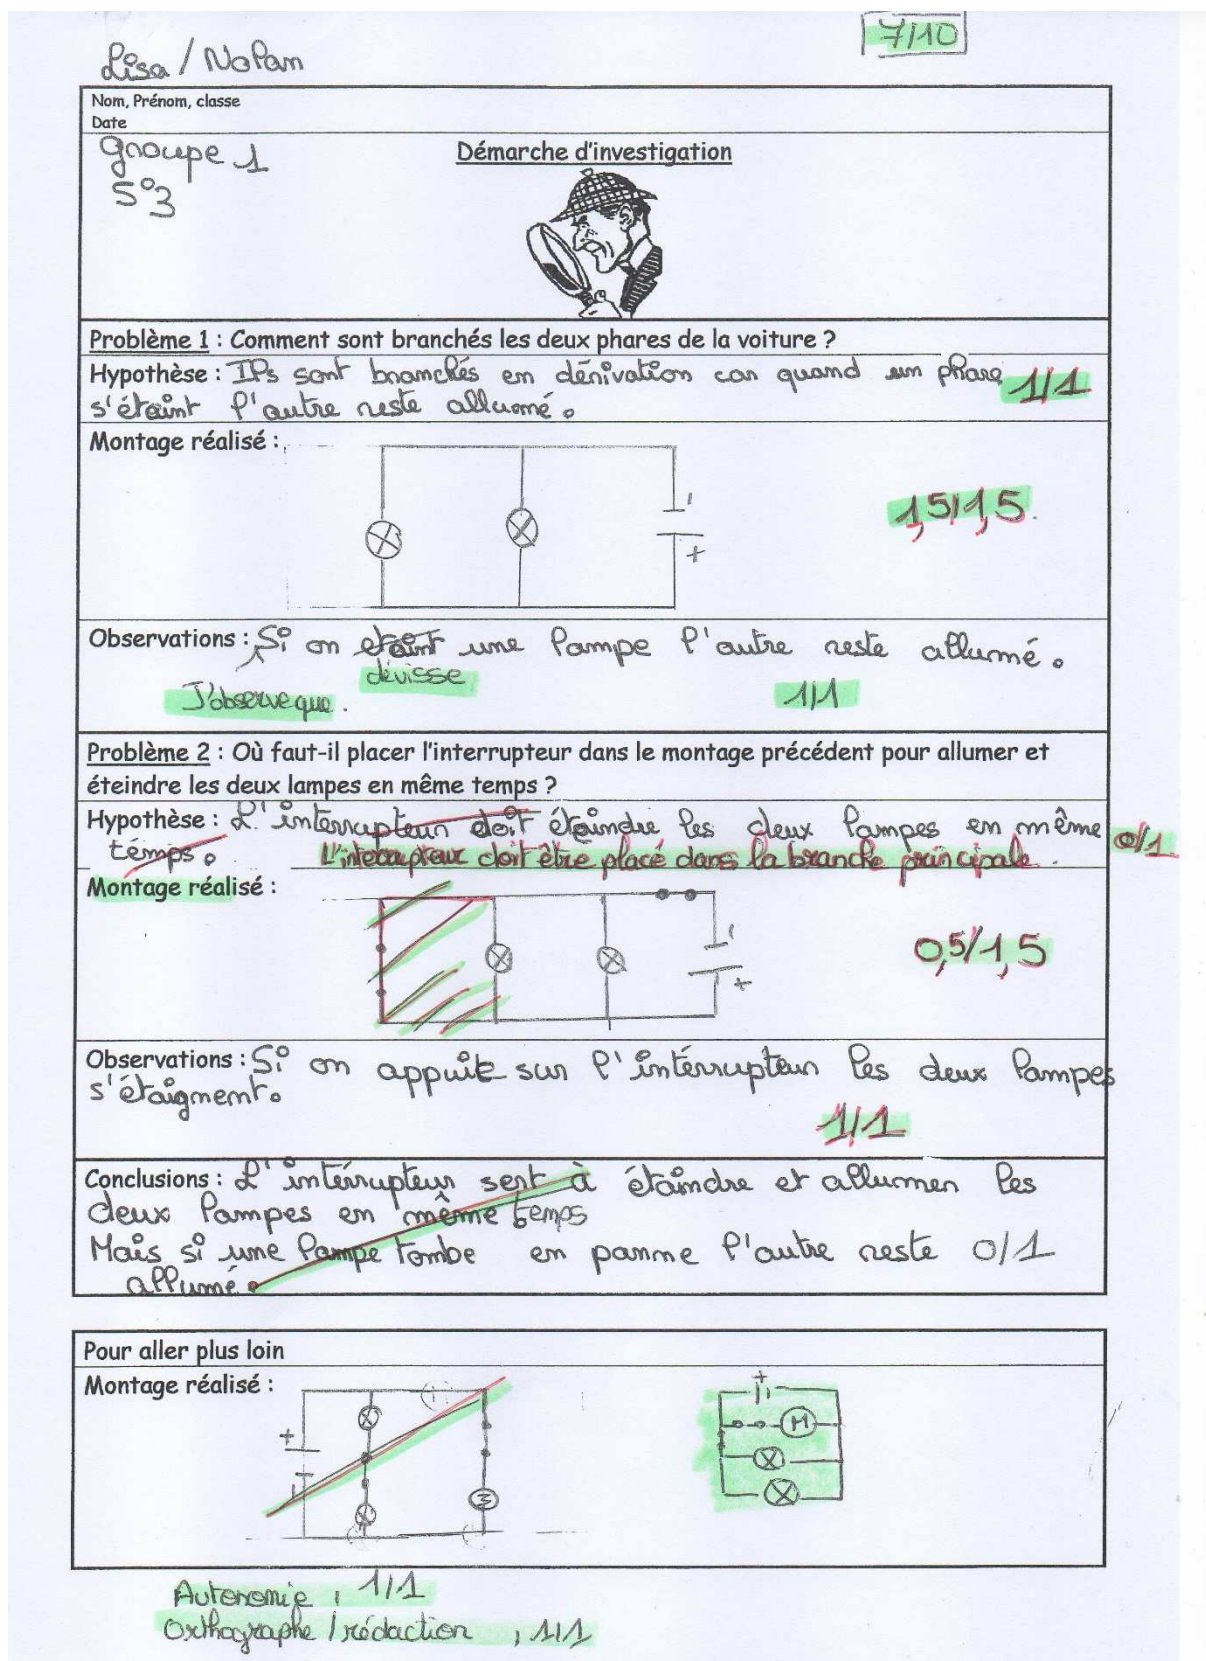 7/10
Lisa / Nolan
Nom, Prénom, classe
Date
groupe 1
5°3
Démarche d'investigation
Problème 1 : Comment sont branchés les deux phares de la voiture ?
Hypothèse : Ils sont branchés en dérivation car quand un phare
s'étaint l'autre reste allumé.
1/1
Montage réalisé :
-
+
1,5/1,5
Observations : Si on etaint une lampe l'autre reste allumé.
dévisse
J'observe que.
1/1
Problème 2 : Où faut-il placer l'interrupteur dans le montage précédent pour allumer et
éteindre les deux lampes en même temps ?
Hypothèse : L'interrupteur doit étaindre les deux lampes en même
temps.
L'interrupteur doit être placé dans la branche principale.
0/1
Montage réalisé :
-
+
0,5/1,5
Observations : Si on appuit sur l'intérrupteur les deux lampes
s'étaignent.
1/1
Conclusions : L'intérrupteur sert à étaindre et allumer les
deux lampes en même temps
Mais si une lampe tombe en panne l'autre reste
allumé.
0/1
Pour aller plus loin
Montage réalisé :
+
-
M
+
-
M
Autonomie, 1/1
Orthographe / rédaction, 1/1